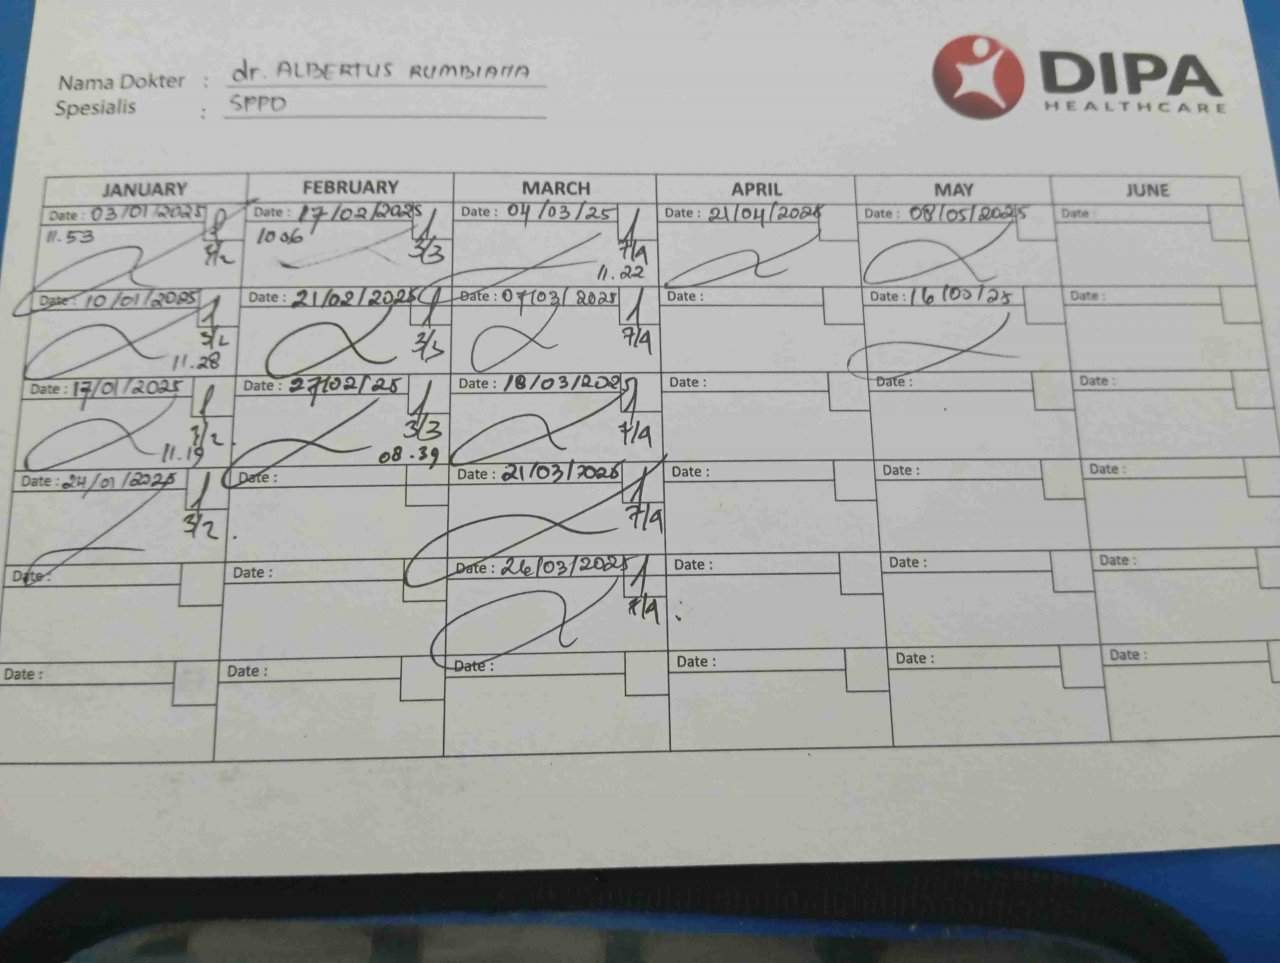 Nama Dokter : dr. ALBERTUS RUMBIANA
Spesialis : SPPD
DIPA
HEALTHCARE
JANUARY FEBRUARY MARCH APRIL MAY JUNE
Date : 03/01/2025 Date : 17/02/2025 Date : 04/03/25 Date : 21/04/2025 Date : 08/05/2025 Date :
11.53 3/2 1006 3/3 7/4 11.22
Date : 10/01/2025 Date : 21/02/2025 Date : 07/03/2025 Date : Date : 16/05/25 Date :
3/2 11.28 3/3 7/4
Date : 17/01/2025 Date : 27/02/25 Date : 18/03/2025 Date : Date : Date :
3/2 11.19 3/3 08.39 7/4
Date : 24/01/2025 Date : Date : 21/03/2025 Date : Date : Date :
3/2 7/4
Date : Date : Date : 26/03/2025 Date : Date : Date :
7/4
Date : Date : Date : Date : Date : Date :